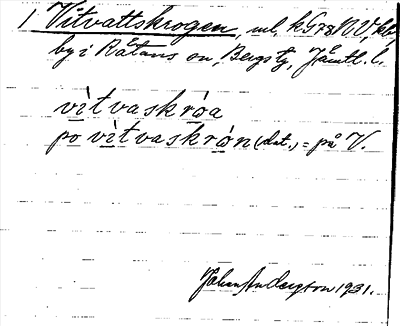 1 Vitvattskrogen, ul. kG78NV, kbl,
by i Råtans sn, Bergs tg, Jämtl. l.
vìtvaskróa
po vìtvaskrón (dat.) = på V.
Johan Anderson 1931.